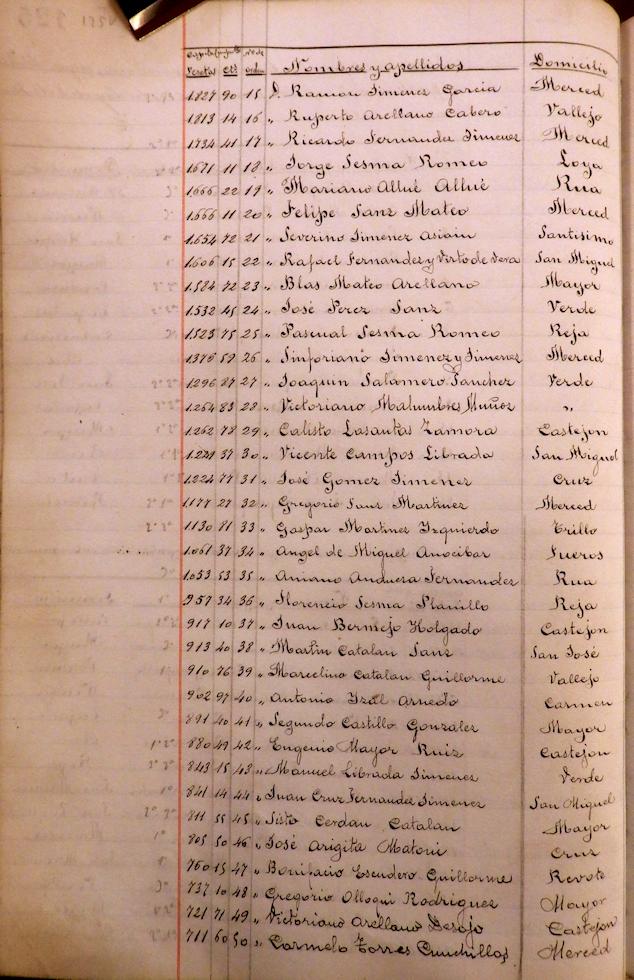 Pesetas Cts orden Nombres y apellidos Domicilio
1.827 90 15 D. Ramon Jimenez Garcia Merced
1.813 14 16 " Ruperto Arellano Cabero Vallejo
1.734 41 17 " Ricardo Fernandez Jimenez Merced
1.671 11 18 " Jorge Sesma Romeo Loya
1.666 22 19 " Mariano Allué Allué Rua
1.666 11 20 " Felipe Sanz Mateo Merced
1.654 72 21 " Severino Jimenez Asiain Santisimo
1.606 15 22 " Rafael Fernandez y Virto de Vera San Miguel
1.584 72 23 " Blas Mateo Arellano Mayor
1.532 45 24 " José Perez Sanz Verde
1.523 75 25 " Pascual Sesma Romeo Reja
1.376 59 26 " Sinforiano Jimenez y Jimenez Merced
1.296 87 27 " Joaquin Salamero Sanchez Verde
1.264 83 28 " Victoriano Malumbres Muñoz "
1.262 78 29 " Calisto Lasantas Zamora Castejon
1.231 37 30 " Vicente Campos Librada San Miguel
1.224 77 31 " José Gomez Jimenez Cruz
1.177 27 32 " Gregorio Sanz Martinez Merced
1.130 81 33 " Gaspar Martinez Yzquierdo Trillo
1.061 37 34 " Angel de Miguel Anocibar Fueros
1.053 53 35 " Aniano Anduesa Fernandez Rua
957 34 36 " Florencio Sesma Planillo Reja
917 10 37 " Juan Bermejo Holgado Castejon
913 40 38 " Martin Catalan Sanz San José
910 76 39 " Marcelino Catalan Guillorme Vallejo
902 97 40 " Antonio Yzal Arnedo Carmen
891 40 41 " Segundo Castillo Gonzalez Mayor
880 49 42 " Eugenio Mayor Ruiz Castejon
843 15 43 " Manuel Librada Jimenez Verde
841 14 44 " Juan Cruz Fernandez Jimenez San Miguel
811 55 45 " Sisto Cerdan Catalan Mayor
805 50 46 " José Arigita Matoni Cruz
760 15 47 " Bonifacio Escudero Guillorme Revote
737 10 48 " Gregorio Olloqui Rodriguez Mayor
721 71 49 " Victoriano Arellano Desojo Castejon
711 60 50 " Carmelo Torres Cunchillos Merced